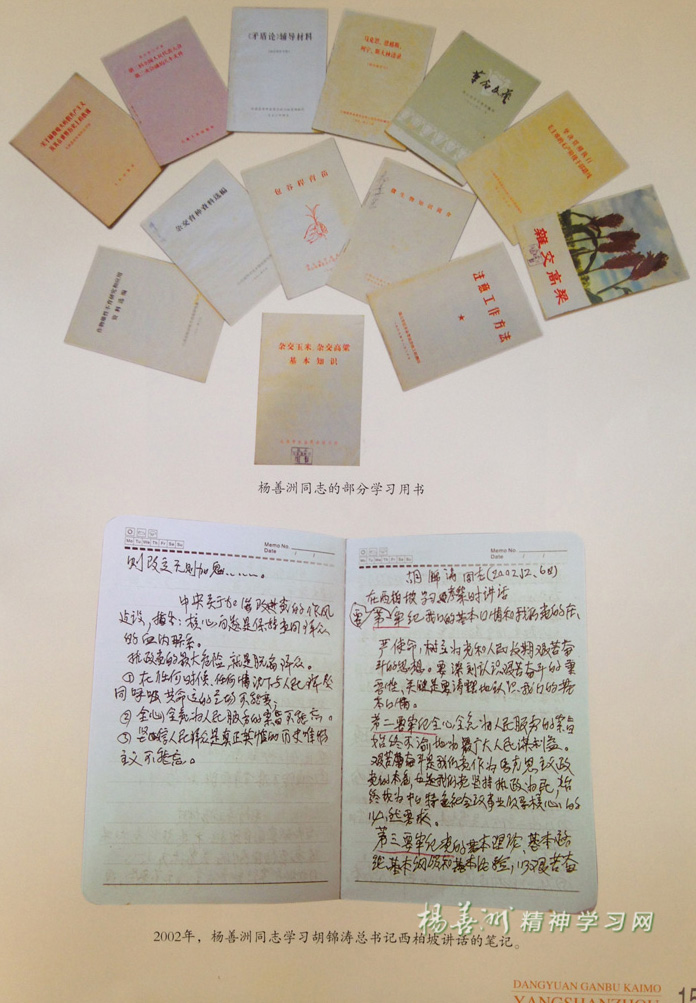 《矛盾论》辅导材料
革命文豪
杂交育种资料选编
包谷程育苗
杂交高粱
注意工作方法
资料选编
杂交玉米、杂交高粱
基本知识
杨善洲同志的部分学习用书
Memo No.
Mo Tu We Th Fr Sa Su
Date
则改之无则加勉……。
中央关于加强改进党的作风
建设，指出：核心问题是保持党同群众
的血肉联系。
执政党的最大危险，就是脱离群众。
①在任何时候、任何情况下与人民群众
同呼吸共命运的立场不能变，
②全心全意为人民服务的宗旨不能忘。
③坚信人民群众是真正英雄的历史唯物
主义不能丢。
Memo No.
Mo Tu We Th Fr Sa Su
Date
胡锦涛同志(2002.12.6日)
在西柏坡学习考察时讲话
第一要牢记我们的基本国情和我们党的庄
严使命，树立为党和人民长期艰苦奋
斗的思想。要深刻认识艰苦奋斗的重
要性，关键是要清醒地认识我们的基
本国情。
第二要牢记全心全意为人民服务的宗旨
始终不渝地为最广大人民谋利益。
艰苦奋斗是我们党作为马克思主义政
党的本色，也是我们党坚持执政为民，始
终成为中国特色社会主义事业领导核心的
必然要求。
第三要牢记党的基本理论、基本路
线、基本纲领和基本经验，以艰苦奋
杨善洲精神学习网
2002年，杨善洲同志学习胡锦涛总书记西柏坡讲话的笔记。
DANGYUAN GANBU KAIMO
YANGSHANZHOU